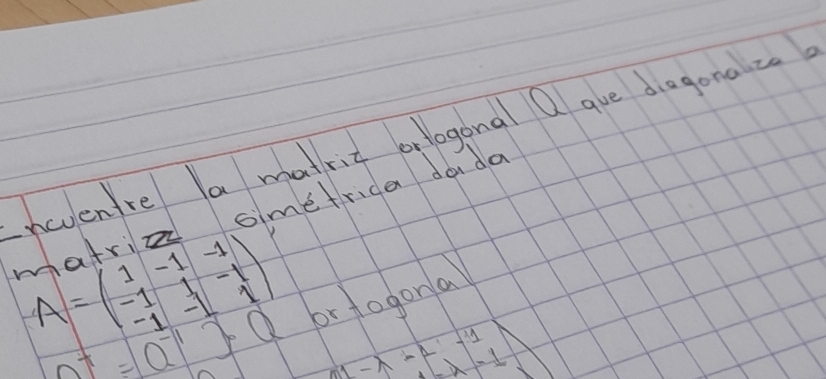 Encuentre la matriz ortogonal Q que diagonaliza a
matriz simétrica dada
A = ( 1 -1 -1
-1 1 -1
-1 -1 1 )
Q^T = Q^-1 } Q ortogonal
1-λ -1 -1
-λ -1